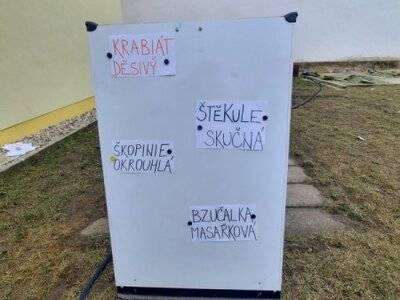 KRABIÁT
DĚSIVÝ
ŠTĚKULE
SKUČNÁ
ŠKOPINIE
OKROUHLÁ
BZUČALKA
MASAŘKOVÁ